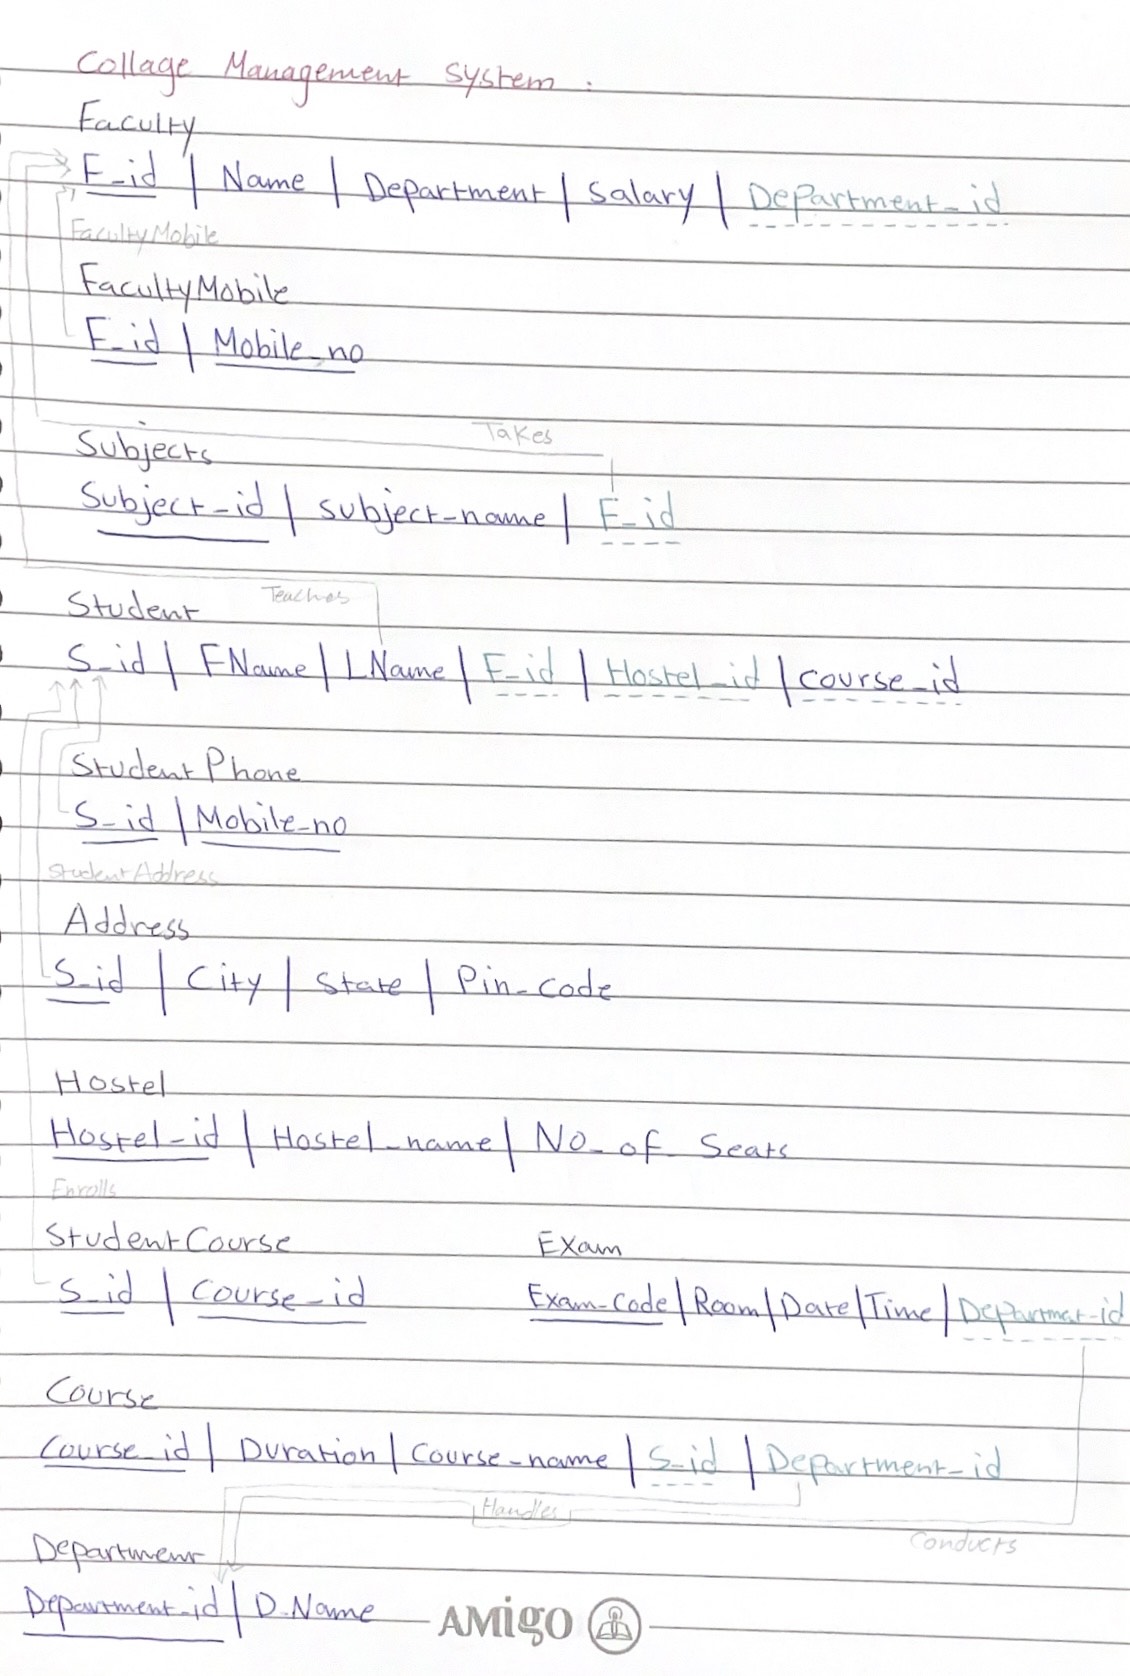 Collage Management System :
Faculty
F_id | Name | Department | Salary | Department_id
FacultyMobile
FacultyMobile
F_id | Mobile_no
Takes
Subjects
Subject_id | Subject_name | F_id
Teaches
Student
S_id | FName | LName | F_id | Hostel_id | Course_id
Student Phone
S_id | Mobile_no
Student Address
Address
S_id | City | State | Pin_code
Hostel
Hostel_id | Hostel_name | No_of_Seats
Enrolls
Student Course Exam
S_id | Course_id Exam_Code | Room | Date | Time | Departmet_id
Course
Course_id | Duration | Course_name | S_id | Department_id
Handles
Conducts
Department
Department_id | D_Name
AMigo